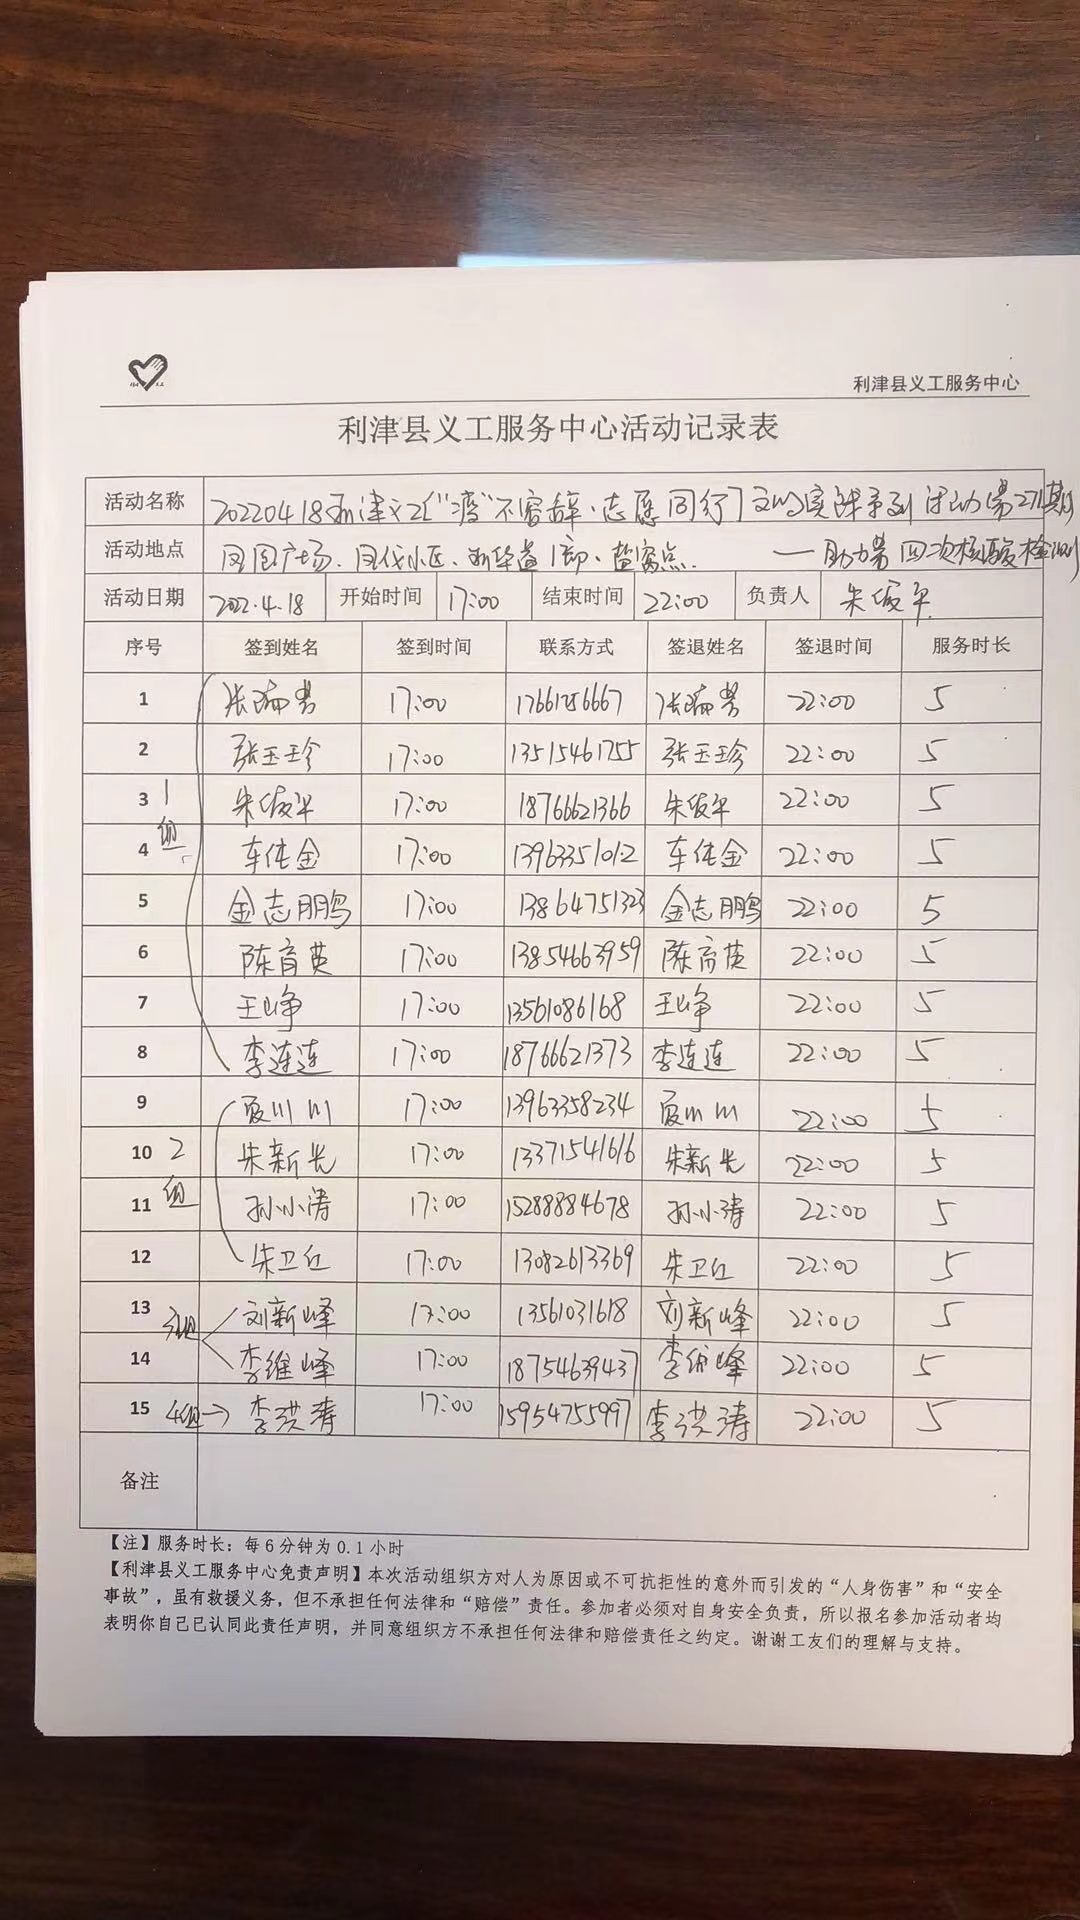 利津县义工服务中心
利津县义工服务中心活动记录表
活动名称 20220418利津义工["疫"不容辞·志愿同行]文明实践系列活动第271期
活动地点 凤凰广场、凤代小区、新华道1部、盐窝点. ——助力第四次核酸检测
活动日期 2022.4.18 开始时间 17:00 结束时间 22:00 负责人 朱俊平
序号 签到姓名 签到时间 联系方式 签退姓名 签退时间 服务时长
1 张瑞芳 17:00 22:00 5
2 张玉珍 17:00 13515461755 张玉珍 22:00 5
3 朱俊平 17:00 18766621366 朱俊平 22:00 5
1组
4 车传金 17:00 13963351012 车传金 22:00 5
5 金志鹏 17:00 13864751323 金志鹏 22:00 5
6 陈育英 17:00 13854663959 陈育英 22:00 5
7 王峥 17:00 13561086168 王峥 22:00 5
8 李连连 17:00 18766621373 李连连 22:00 5
9 夏川川 17:00 13963358234 夏川川 22:00 5
10 朱新光 17:00 13371541616 朱新光 22:00 5
2组
11 孙小涛 17:00 15288884678 孙小涛 22:00 5
12 朱卫红 17:00 13082613369 朱卫红 22:00 5
13 刘新峰 17:00 13561031618 刘新峰 22:00 5
3组
14 李维峰 17:00 18754639437 李维峰 22:00 5
15 4组→ 李洪涛 17:00 15954755997 李洪涛 22:00 5
备注
【注】服务时长：每6分钟为0.1小时
【利津县义工服务中心免责声明】本次活动组织方对人为原因或不可抗拒性的意外而引发的“人身伤害”和“安全
事故”，虽有救援义务，但不承担任何法律和“赔偿”责任。参加者必须对自身安全负责，所以报名参加活动者均
表明你自己已认同此责任声明，并同意组织方不承担任何法律和赔偿责任之约定。谢谢工友们的理解与支持。